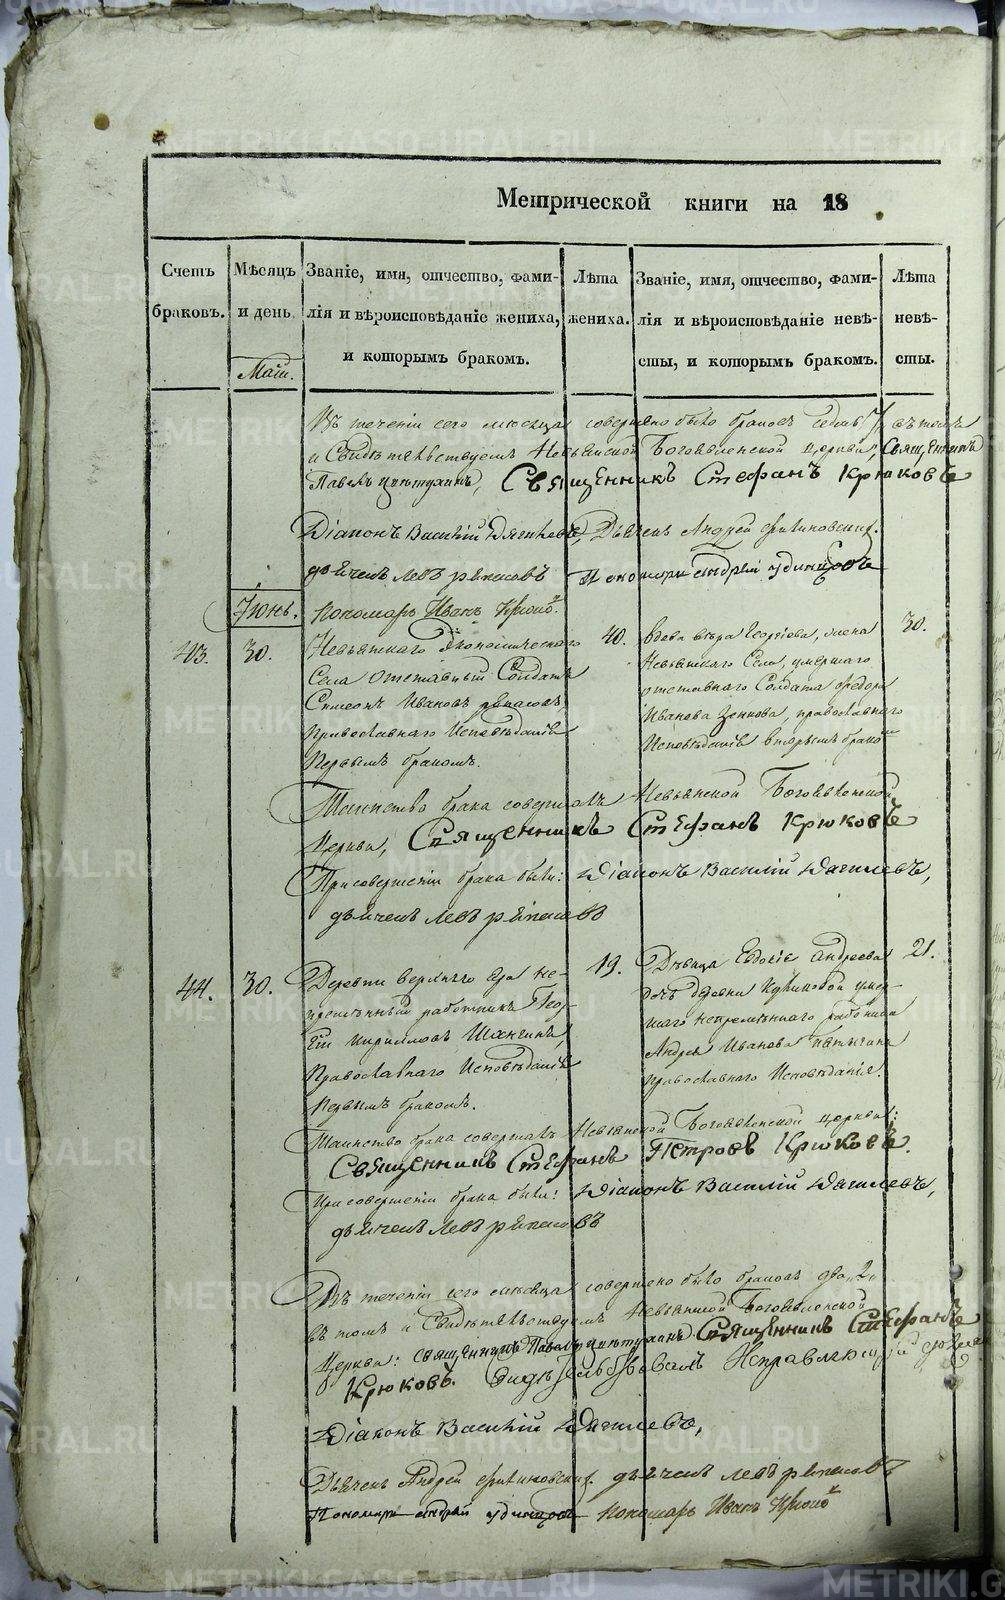 Метрической книги на 18
Счетъ браковъ.
Мѣсяцъ и день.
Званіе, имя, отчество, фами-
лія и вѣроисповѣданіе жениха,
и которымъ бракомъ.
Лѣта
жениха.
Званіе, имя, отчество, фами-
лія и вѣроисповѣданіе невѣ-
сты, и которымъ бракомъ.
Лѣта
невѣ-
сты.
Маій.
Въ теченіи сего мѣсяца совершено было браковъ седмь 7, въ томъ
и Свидѣтельствуемъ Невьянской Богоявленской церкви, Священникъ
Павелъ Священникъ Стефанъ Крюковъ
Діаконъ Василій Дягилевъ, Дьячекъ Андрей
дьячекъ Левъ Рѣпасовъ Пономарь Андрей Удинцовъ
Іюнь.
Пономарь Иванъ
43.
30.
Невьянскаго Экономическаго
Села Отставный Солдатъ
Симеонъ Ивановъ
Православнаго Исповѣданія
Первымъ бракомъ.
40.
Вдова Вѣра Георгіева, жена
Невьянскаго Села, умершаго
отставнаго Солдата Федора
Иванова православнаго
Исповѣданія вторымъ бракомъ
30.
Таинство брака совершалъ Невьянской Богоявленской
Церкви, Священникъ Стефанъ Крюковъ
При совершеніи брака были: Діаконъ Василій Дягилевъ,
дьячекъ Левъ Рѣпасовъ
44.
30.
Деревни Верхняго Яра не-
премѣнный работникъ Геор-
гій Кирилловъ Шангинъ,
Православнаго Исповѣданія
Первымъ бракомъ.
19.
Дѣвица Евдокія Андреева
дочь деревни умер-
шаго непремѣннаго работника
Андрея Иванова
православнаго Исповѣданія.
21.
Таинство брака совершалъ Невьянской Богоявленской церкви:
Священникъ Стефанъ Петровъ Крюковъ.
При совершеніи брака были: Діаконъ Василій Дягилевъ,
дьячекъ Левъ Рѣпасовъ
Въ теченіи сего мѣсяца совершено было браковъ два „2„
въ томъ и Свидѣтельствуемъ Невьянской Богоявленской
Церкви: священникъ Павелъ Священникъ Стефанъ
Крюковъ.
Діаконъ Василій Дягилевъ,
Дьячекъ Андрей дьячекъ Левъ Рѣпасовъ
Пономарь Андрей Удинцовъ Пономарь Иванъ
METRIKI.GASO-URAL.RU